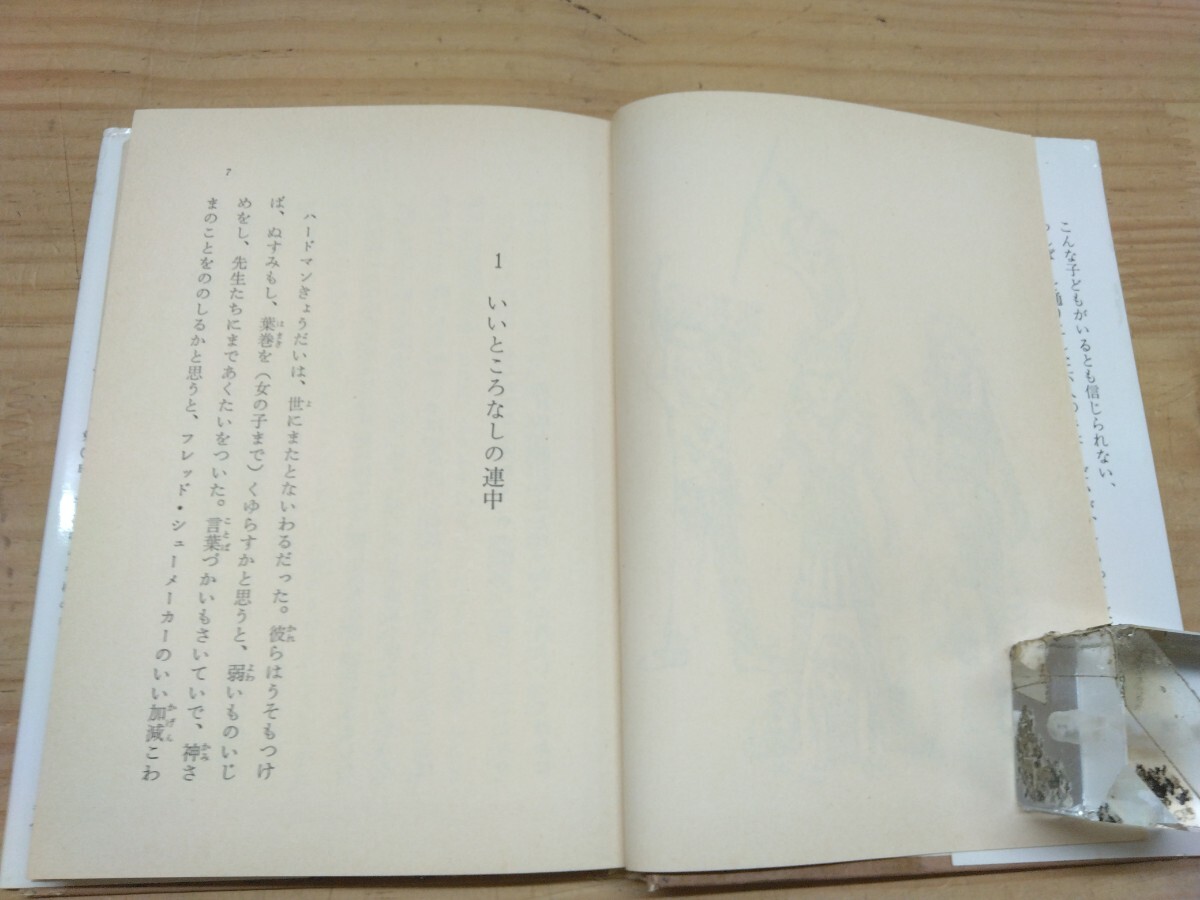 こんな子どもがいるとも信じられない、
1 いいところなしの連中
ハードマンきょうだいは、世にまたとないわるだった。彼らはうそもつけ
ば、ぬすみもし、葉巻を（女の子まで）くゆらすかと思うと、弱いものいじ
めをし、先生たちにまであくたいをついた。言葉づかいもさいていで、神さ
まのことをののしるかと思うと、フレッド・シューメーカーのいい加減こわ
7